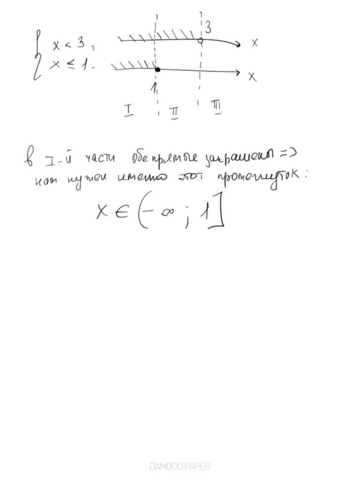 { x < 3,
x ≤ 1.
3
x
1
x
I II III
В I-й части обе прямые закрашены =>
нам нужен именно этот промежуток:
x ∈ (-∞ ; 1]
DAMOOCPAPER